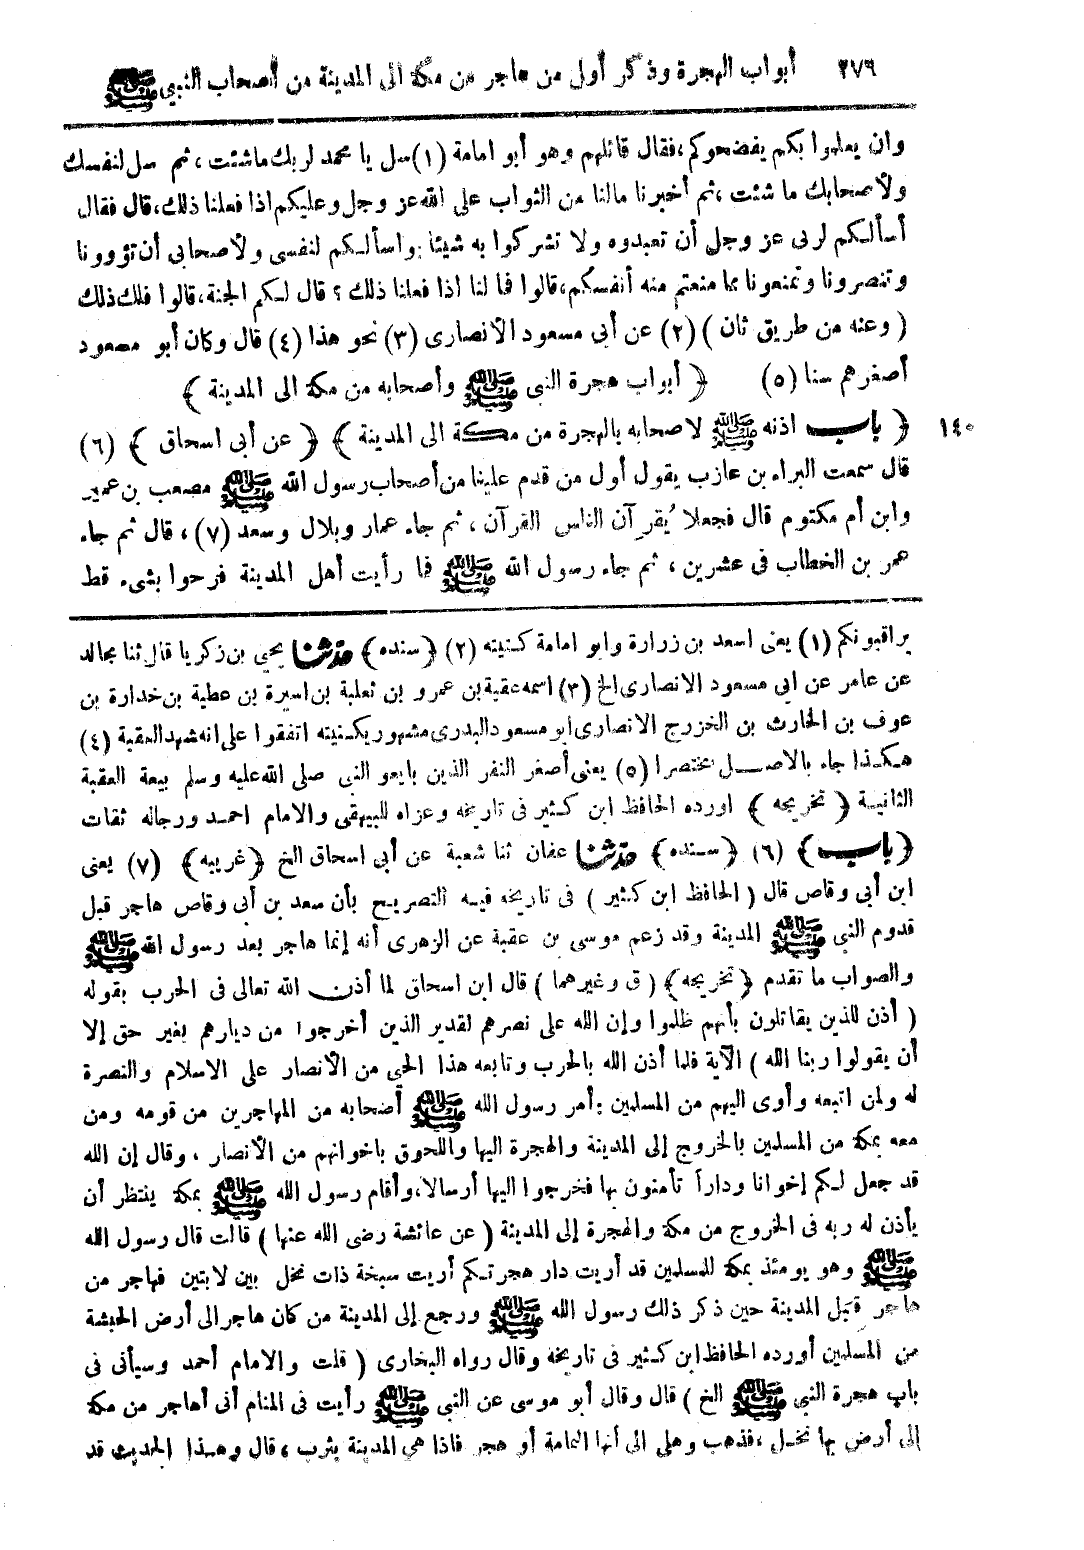 ٢٧٩ أبواب الهجرة وذكر أول من هاجر من مكة الى المدينة من أصحاب النبي ﷺ
وان يعلموا بكم يفضحوكم،فقال قائلهم وهو أبو امامة (١) سل يا محمد لربك ماشئت ، ثم سل لنفسك
ولأصحابك ما شئت ، ثم أخبرنا مالنا من الثواب على الله عز وجل وعليكم اذا فعلنا ذلك، قال فقال
أسألكم لربى عز وجل أن تعبدوه ولا تشركوا به شيئا واسألكم لنفسى ولأصحابى أن تؤوونا
وتنصرونا وتمنعونا مما منعتم منه أنفسكم، قالوا فما لنا اذا فعلنا ذلك ؟ قال لكم الجنة، قالوا فلك ذلك
( وعنه من طريق ثان ) (٢) عن أبى مسعود الأنصارى (٣) نحو هذا (٤) قال وكان أبو مسعود
أصغرهم سنا (٥) ﴿ أبواب هجرة النبى ﷺ وأصحابه من مكة الى المدينة ﴾
١٤٠ ﴿ باب اذنه ﷺ لاصحابه بالهجرة من مكة الى المدينة ﴾ ﴿ عن أبى اسحاق ﴾ (٦)
قال سمعت البراء بن عازب يقول أول من قدم علينا من أصحاب رسول الله ﷺ مصعب بن عمير
وابن أم مكتوم قال فجعلا يُقرِآن الناس القرآن ، ثم جاء عمار وبلال وسعد (٧) ، قال ثم جاء
عمر بن الخطاب فى عشرين ، ثم جاء رسول الله ﷺ فما رأيت أهل المدينة فرحوا بشىء قط
يراقبونكم (١) يعنى اسعد بن زرارة وابو امامة كنيته (٢) ﴿سنده﴾ حدثنا يحيى بن زكريا قال ثنا مجالد
عن عامر عن ابى مسعود الانصارى الخ (٣) اسمه عقبة بن عمرو بن ثعلبة بن اسيرة بن عطية بن خدارة بن
عوف بن الحارث بن الخزرج الانصارى ابو مسعود البدرى مشهور بكنيته اتفقوا على انه شهد العقبة (٤)
هكذا جاء بالاصل مختصرا (٥) يعنى أصغر النفر الذين بايعو النبى صلى الله عليه وسلم بيعة العقبة
الثانية ﴿ تخريجه ﴾ اورده الحافظ ابن كثير فى تاريخه وعزاه للبيهقى والامام احمد ورجاله ثقات
﴿باب﴾ (٦) ﴿سنده﴾ حدثنا عفان ثنا شعبة عن أبى اسحاق الخ ﴿غريبه﴾ (٧) يعنى
ابن أبى وقاص قال ( الحافظ ابن كثير ) فى تاريخه فيه التصريح بأن سعد بن أبى وقاص هاجر قبل
قدوم النبى ﷺ المدينة وقد زعم موسى بن عقبة عن الزهرى أنه إنما هاجر بعد رسول الله ﷺ
والصواب ما تقدم ﴿تخريجه﴾ ( ق وغيرهما ) قال ابن اسحاق لما أذن الله تعالى فى الحرب بقوله
( أذن للذين يقاتلون بأنهم ظلموا وإن الله على نصرهم لقدير الذين أخرجوا من ديارهم بغير حق إلا
أن يقولوا ربنا الله ) الآية فلما أذن الله بالحرب وتابعه هذا الحى من الأنصار على الاسلام والنصرة
له ولمن اتبعه وأوى اليهم من المسلمين أمر رسول الله ﷺ أصحابه من المهاجرين من قومه ومن
معه بمكة من المسلمين بالخروج إلى المدينة والهجرة اليها واللحوق باخوانهم من الأنصار ، وقال إن الله
قد جعل لكم إخوانا وداراً تأمنون بها فخرجوا اليها أرسالا، وأقام رسول الله ﷺ بمكة ينتظر أن
يأذن له ربه فى الخروج من مكة والهجرة إلى المدينة ( عن عائشة رضى الله عنها ) قالت قال رسول الله
ﷺ وهو يومئذ بمكة للمسلمين قد أريت دار هجرتكم أريت سبخة ذات نخل بين لابتين فهاجر من
هاجر قبل المدينة حين ذكر ذلك رسول الله ﷺ ورجع إلى المدينة من كان هاجر الى أرض الحبشة
من المسلمين أورده الحافظ ابن كثير فى تاريخه وقال رواه البخارى ( قلت والامام أحمد وسيأتى فى
باب هجرة النبى ﷺ الخ ) قال وقال أبو موسى عن النبى ﷺ رأيت فى المنام أنى أهاجر من مكة
إلى أرض بها نخل ، فذهب وهلى الى أنها اليمامة أو هجر فاذا هى المدينة يثرب ، قال وهذا الحديث قد